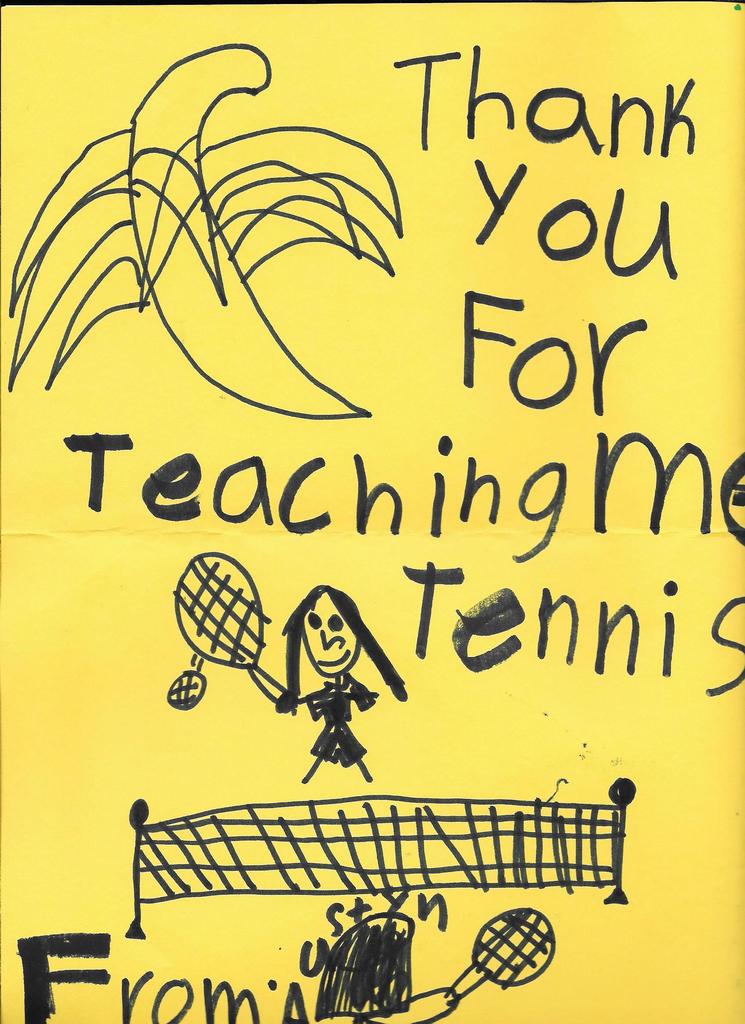 Thank
You
For
Teaching Me
Tennis
From: Austyn